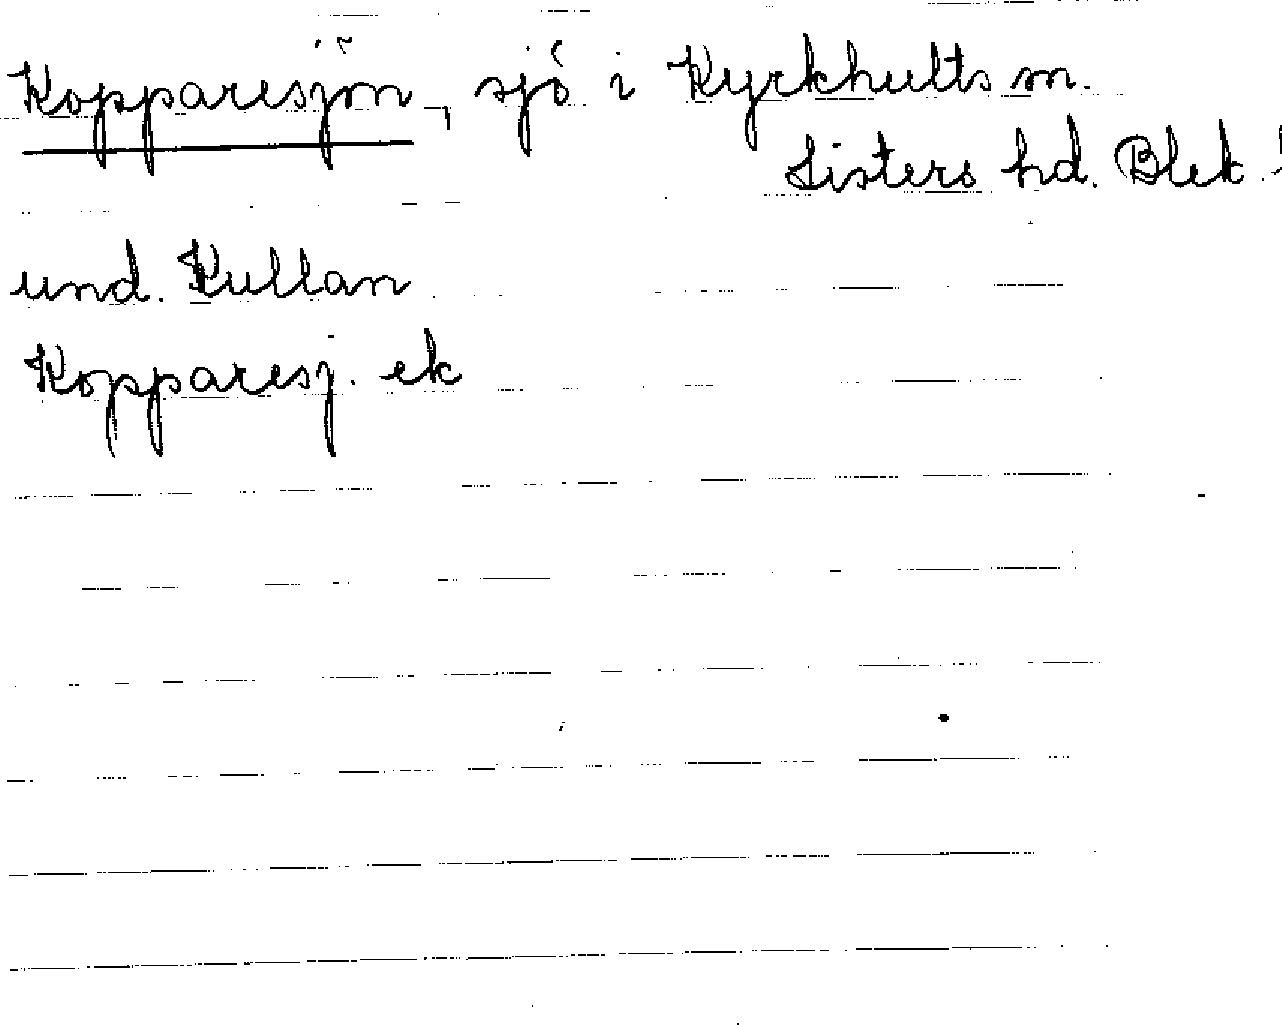 Kopparesjön, sjö i Kyrkhults sn.
Listers hd. Blek.
und. Kullan
Kopparesj. ek